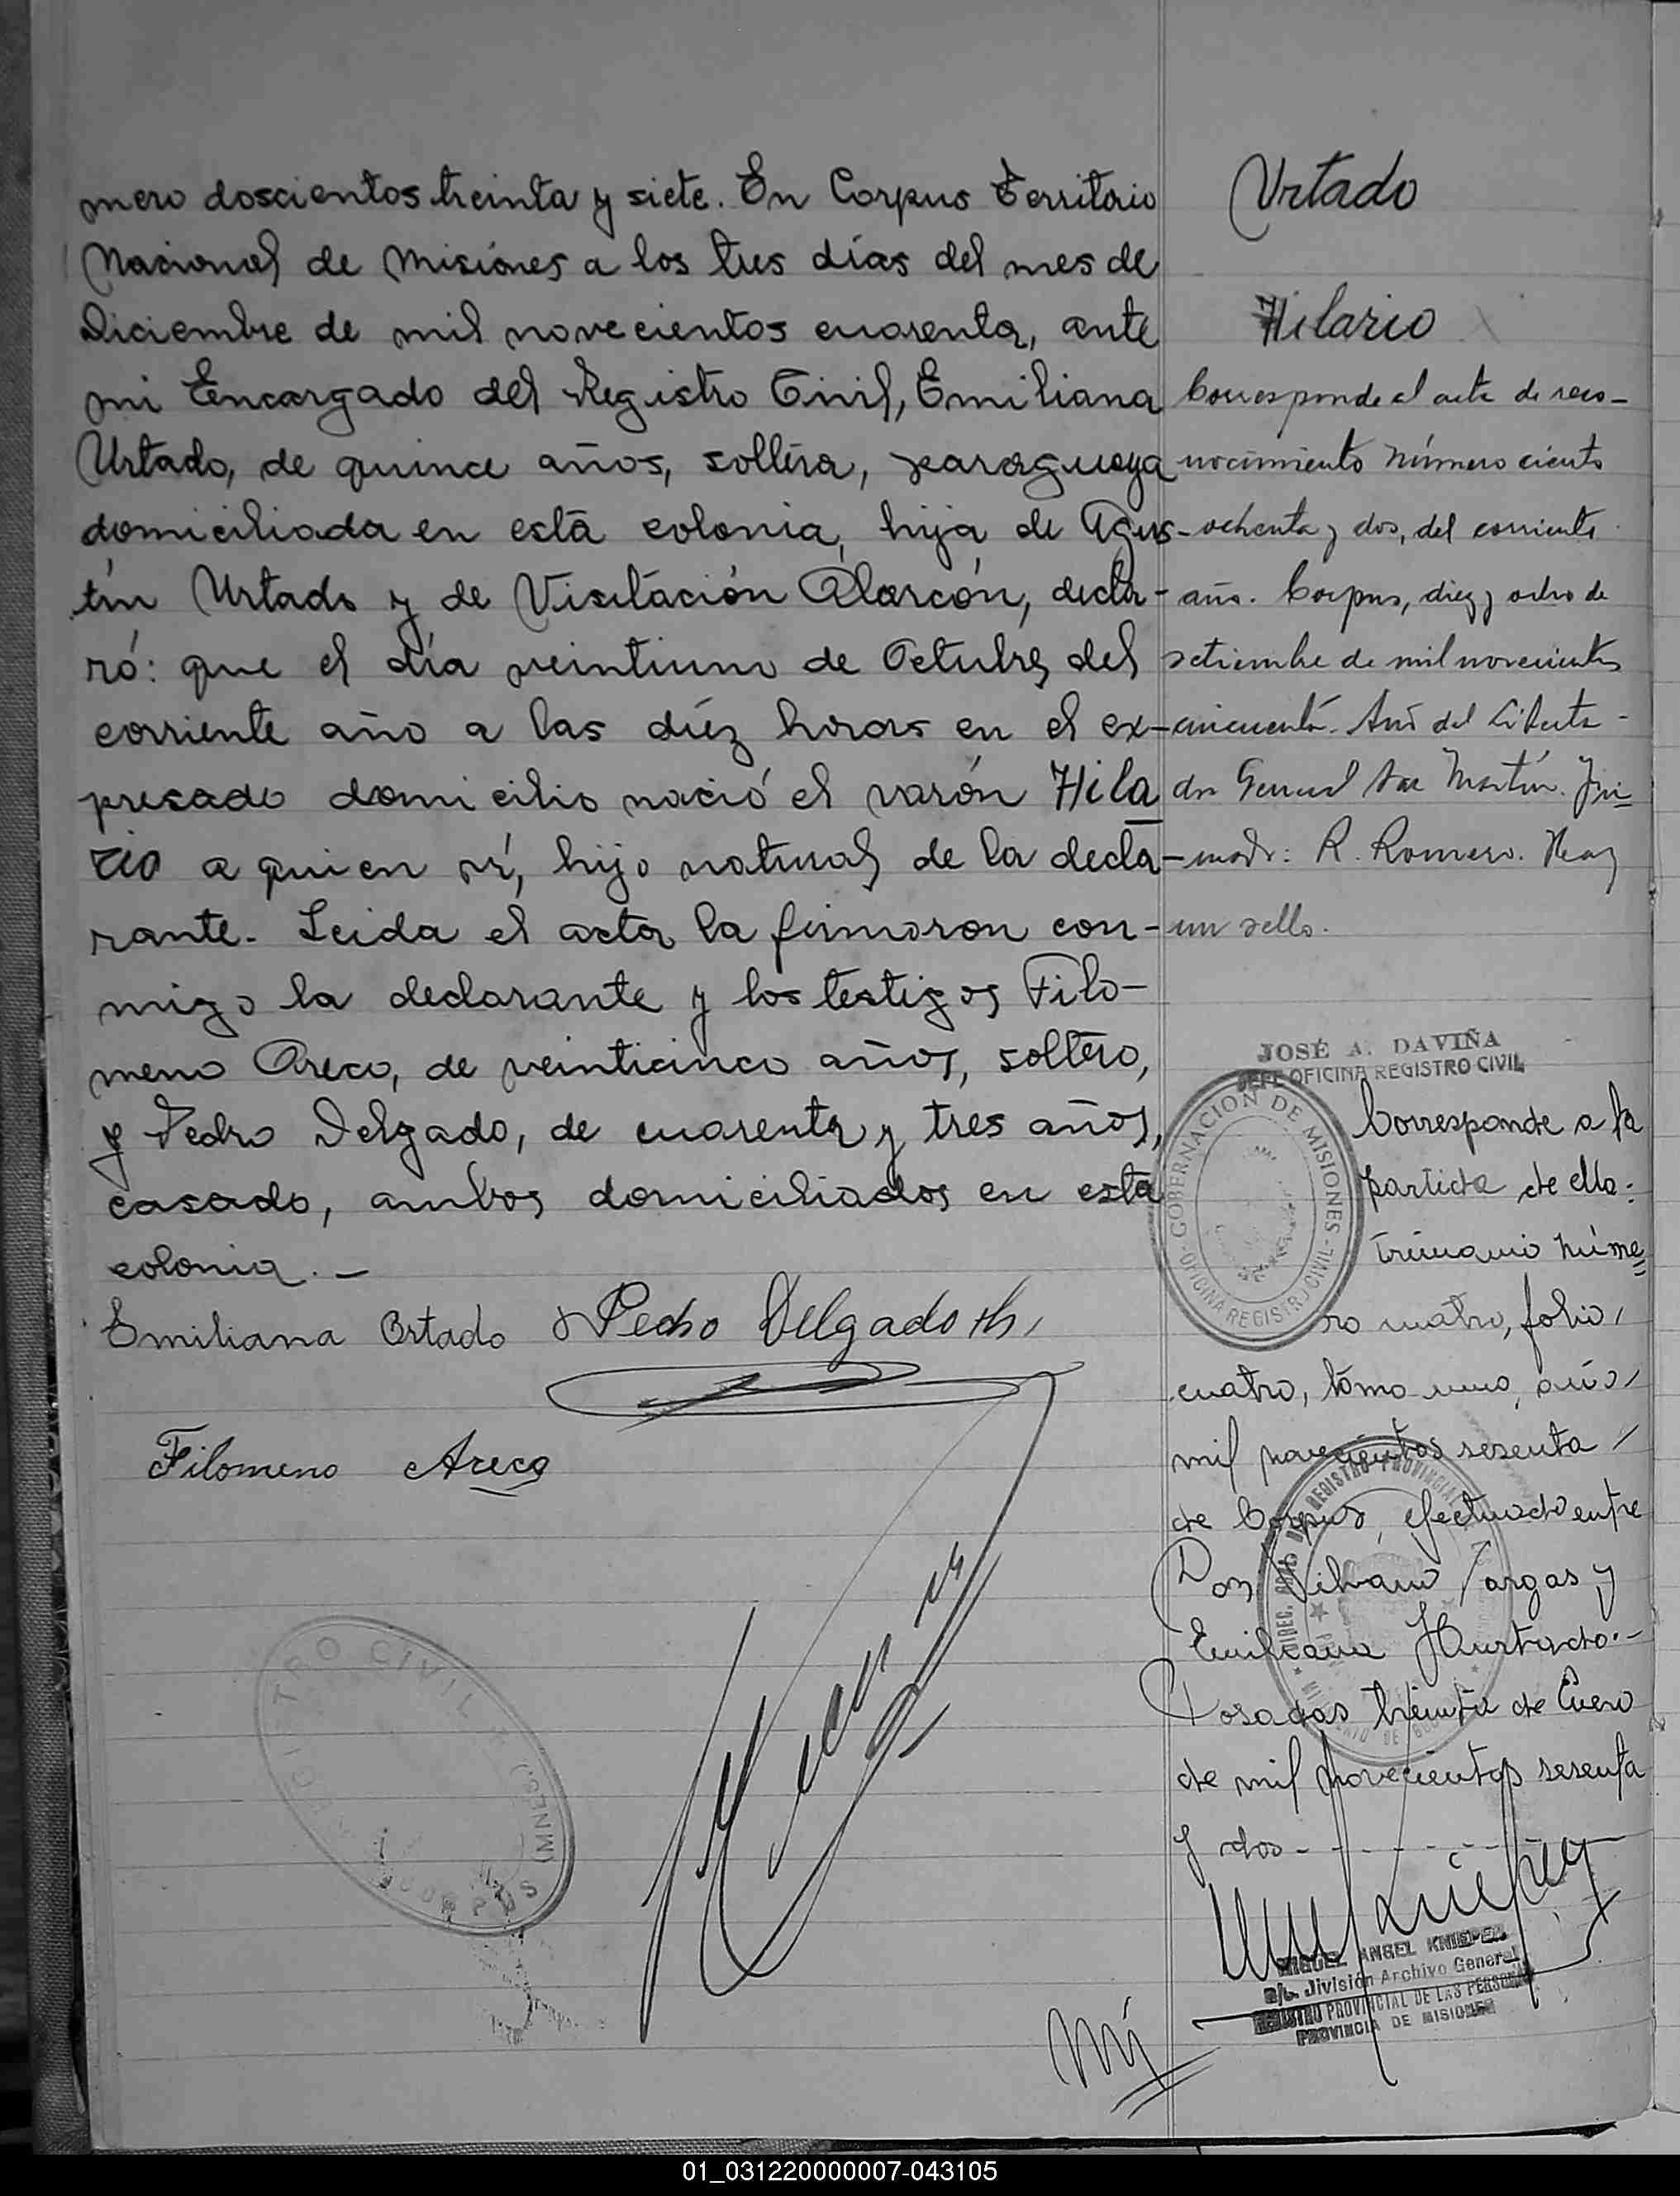 mero doscientos treinta y siete. En Corpus Territorio
Nacional de Misiónes a los tres días del mes de
Diciembre de mil novecientos cuarenta, ante
mi Encargado del Registro Civil, Emiliana
Urtado, de quince años, soltera, paraguaya
domiciliada en está colonia, hija de Agus-
tín Urtado y de Visitación Alarcón, decla-
ró: que el día veintiuno de Octubre del
corriente año a las diéz horas en el ex-
presado domicilio nació el varón Hila
rio a quien ví, hijo natural de la decla-
rante. Leida el acta la firmaron con-
migo la declarante y los testigos Filo-
meno Areco, de veinticinco años, soltero,
y Pedro Delgado, de cuarenta y tres años,
casado, ambos domiciliados en esta
colonia.-
Emiliana Ortado Pedro Delgado
Filomeno Areco
REGISTRO CIVIL
CORPUS (MNES.)
Urtado
Hilario
Corresponde al acta de reco-
nocimiento número ciento
ochenta y dos, del corriente
año. Corpus, diez y ocho de
setiembre de mil novecientos
cincuenta. Año del Liberta-
dor General San Martín. Fir-
mado: R. Romero. Hay
un sello.
JOSÉ A. DAVIÑA
JEFE OFICINA REGISTRO CIVIL
GOBERNACION DE MISIONES
OFICINA REGISTRO CIVIL
Corresponde a la
partida de Ma:
trimonio núme
ro cuatro, folio
cuatro, tomo uno, año
mil novecientos sesenta
de Corpus, efectuado entre
Don Vargas y
Emiliana Hurtado.-
Posadas treinta de Enero
de mil novecientos sesenta
y dos - - - - -
MIGUEL ANGEL KNIEPER
a/c. División Archivo General
REGISTRO PROVINCIAL DE LAS PERSONAS
PROVINCIA DE MISIONES
01_031220000007-043105